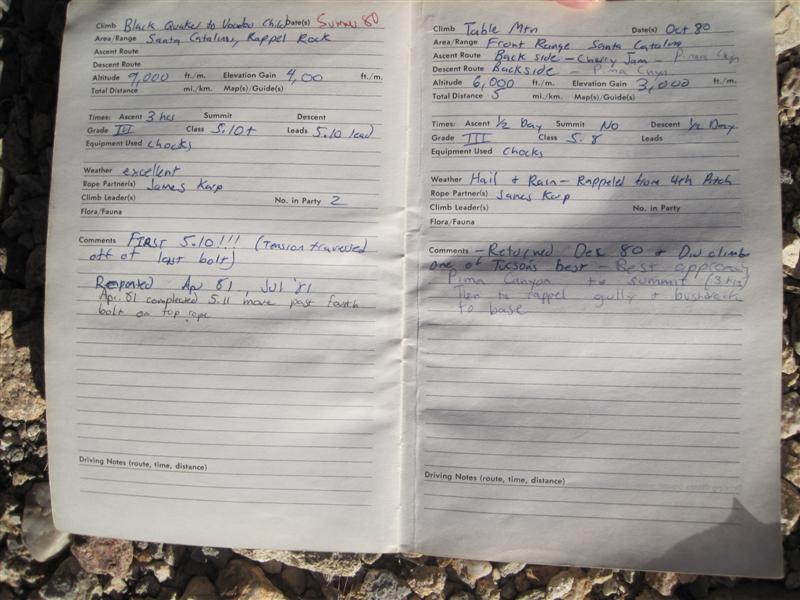 Climb Black Quaker to Voodoo Child Date(s) Summer 80
Area/Range Santa Catalinas, Rappel Rock
Ascent Route
Descent Route
Altitude 9,000 ft./m. Elevation Gain 4,00 ft./m.
Total Distance mi./km. Map(s)/Guide(s)
Times: Ascent 3 hrs Summit Descent
Grade III Class 5.10+ Leads 5.10 lead
Equipment Used chocks
Weather excellent
Rope Partner(s) James Karp
Climb Leader(s) No. in Party 2
Flora/Fauna
Comments FIRST 5.10!!! (Tension traversed
off of last bolt)
Repeated Apr 81, Jul '81
Apr. 81 completed 5.11 move past fourth
bolt on top rope
Driving Notes (route, time, distance)
Climb Table Mtn Date(s) Oct 80
Area/Range Front Range Santa Catalina
Ascent Route Back side - Cherry Jam - Pima Cnyn
Descent Route Backside - Pima Cnyn
Altitude 6,000 ft./m. Elevation Gain 3,000 ft./m.
Total Distance 5 mi./km. Map(s)/Guide(s)
Times: Ascent 1/2 Day Summit No Descent 1/2 Day
Grade III Class 5.8 Leads
Equipment Used Chocks
Weather Hail + Rain - Rappeled from 4th Pitch
Rope Partner(s) James Karp
Climb Leader(s) No. in Party
Flora/Fauna
Comments - Returned Dec 80 + Did climb
one of Tucson's best - Best approach
Pima Canyon to summit (3 hrs)
Then to rappel gully + bushwack
to base
Driving Notes (route, time, distance)